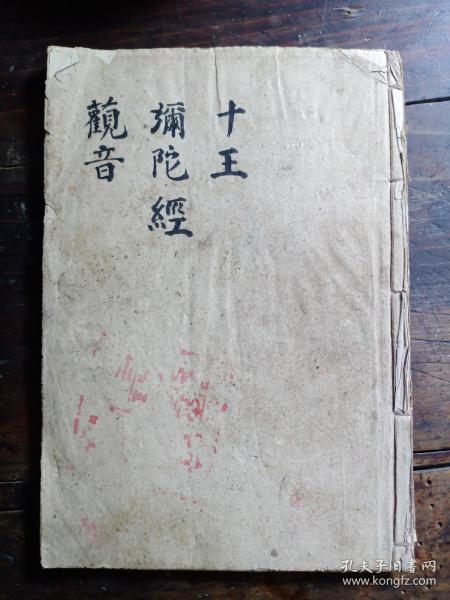 十王
彌陀經
觀音
孔夫子旧书网
www.kongfz.com